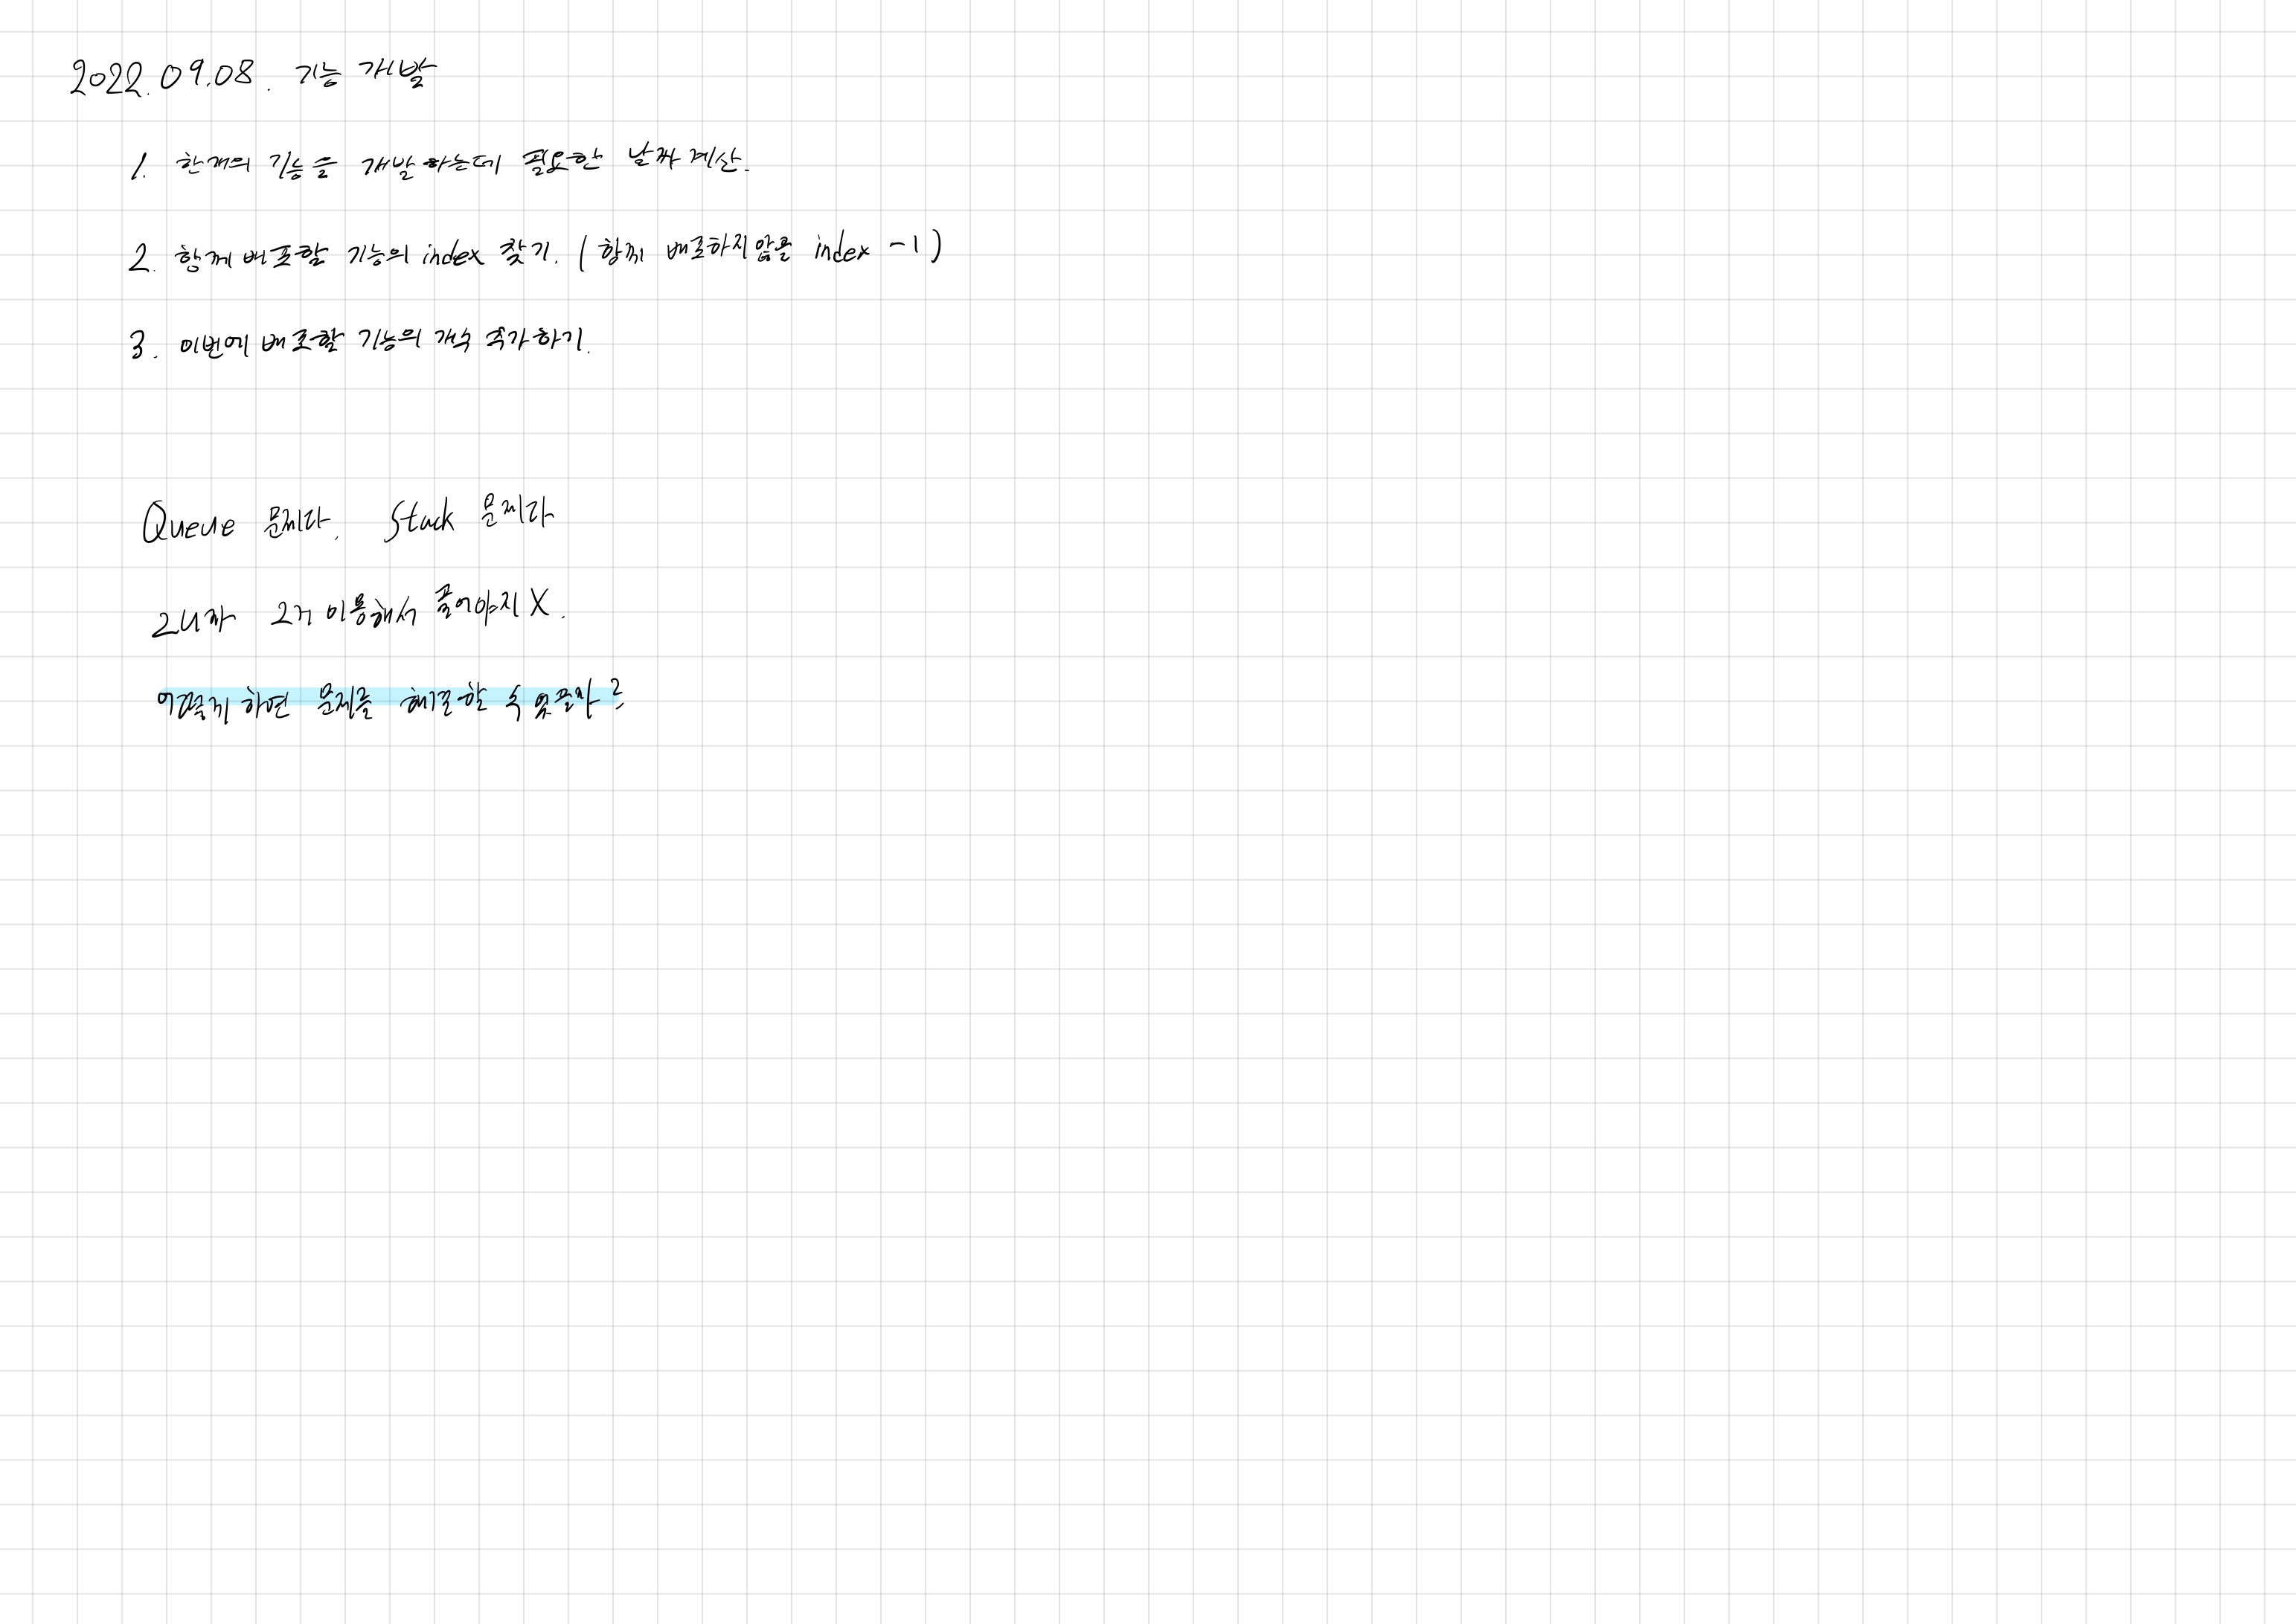 2022.09.08. 기능 개발
1. 한개의 기능을 개발하는데 필요한 날짜 계산.
2. 함께 배포할 기능의 index 찾기. (함께 배포하지않을 index -1)
3. 이번에 배포할 기능의 개수 추가하기.
Queue 문제다, Stack 문제다
그니까 그거 이용해서 풀어야지 X.
어떻게 하면 문제를 해결할 수 있을까?